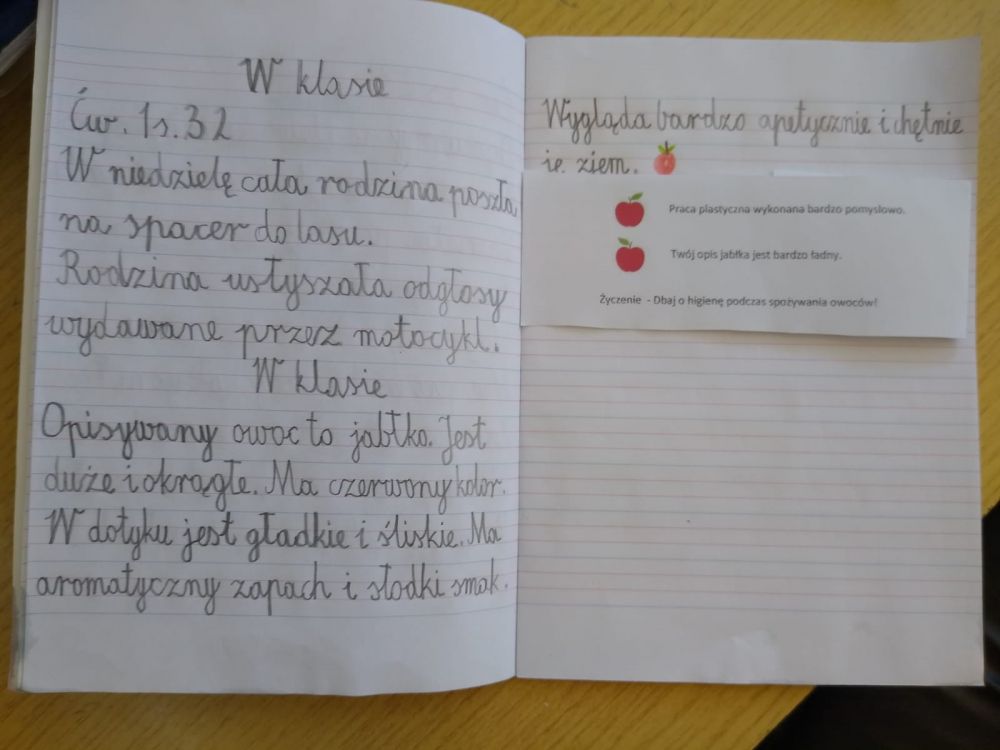 W klasie
Ćw. 1 s. 32
W niedzielę cała rodzina poszła
na spacer do lasu.
Rodzina usłyszała odgłosy
wydawane przez motocykl.
W klasie
Opisywany owoc to jabłko. Jest
duże i okrągłe. Ma czerwony kolor.
W dotyku jest gładkie i śliskie. Ma
aromatyczny zapach i słodki smak.
Wygląda bardzo apetycznie i chętnie
je ziem.
Praca plastyczna wykonana bardzo pomysłowo.
Twój opis jabłka jest bardzo ładny.
Życzenie - Dbaj o higienę podczas spożywania owoców!